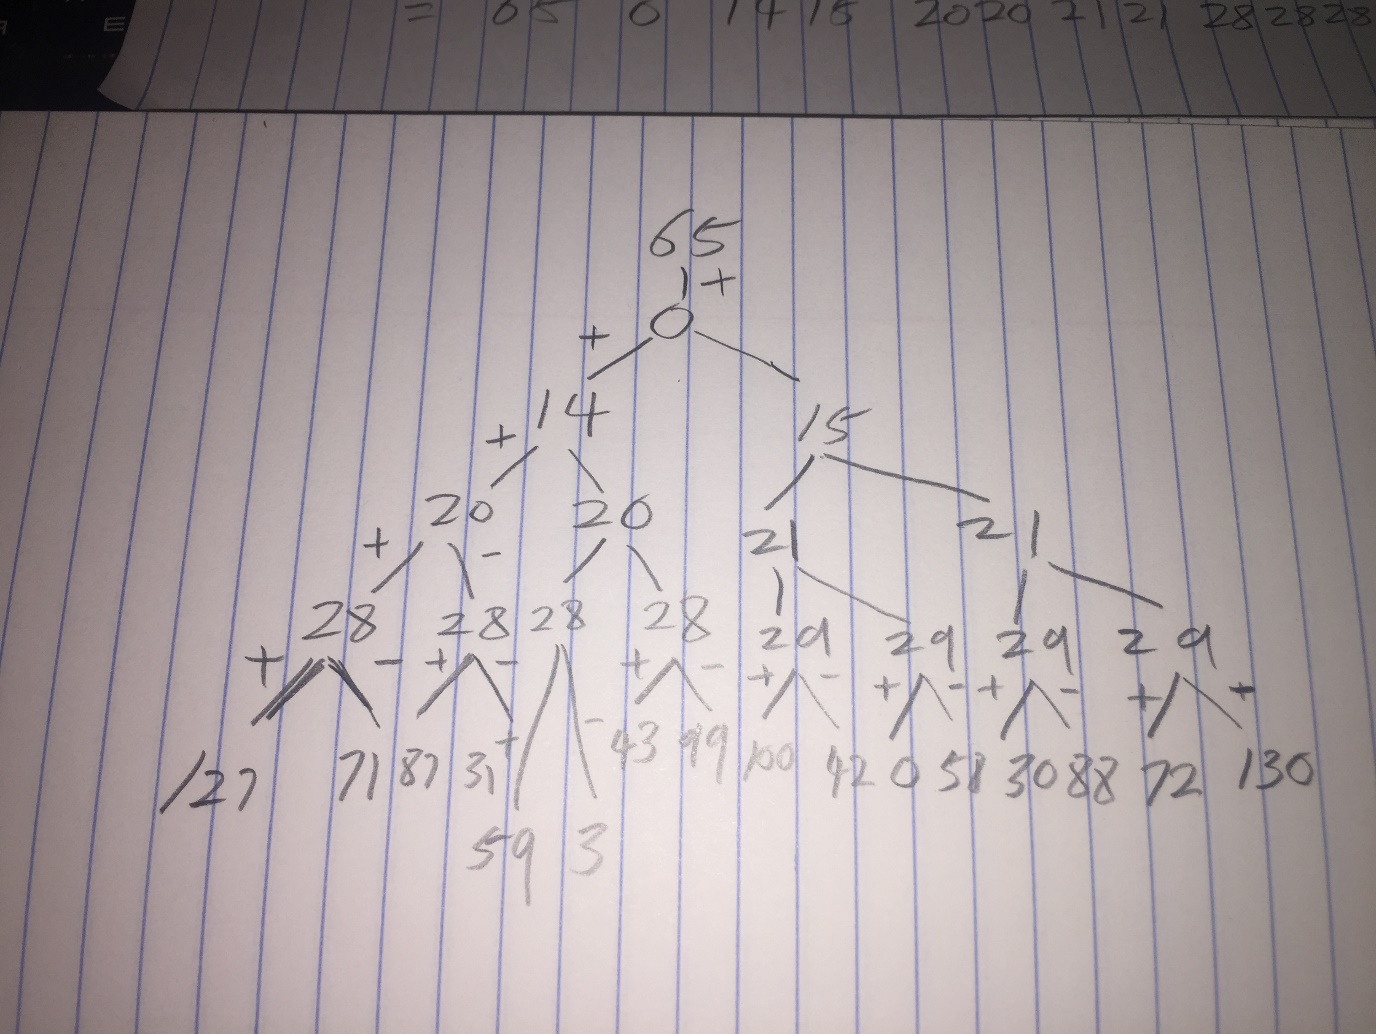 E
= 65 0 14 15 20 20 21 21 28 28 28
65
+
0
+
14 15
+
20 20 21 21
+ -
28 28 28 28 29 29 29 29
+ - + - + - + - + - + - + - + +
127 71 87 31 43 99 100 42 0 58 30 88 72 130
59 3